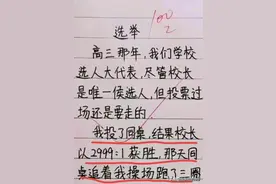 100
选举
高三那年，我们学校
选人大代表，尽管校长
是唯一候选人，但投票过
场还是要走的
我投了同桌，结果校长
以2999：1获胜，那天同
桌追着我操场跑了三圈